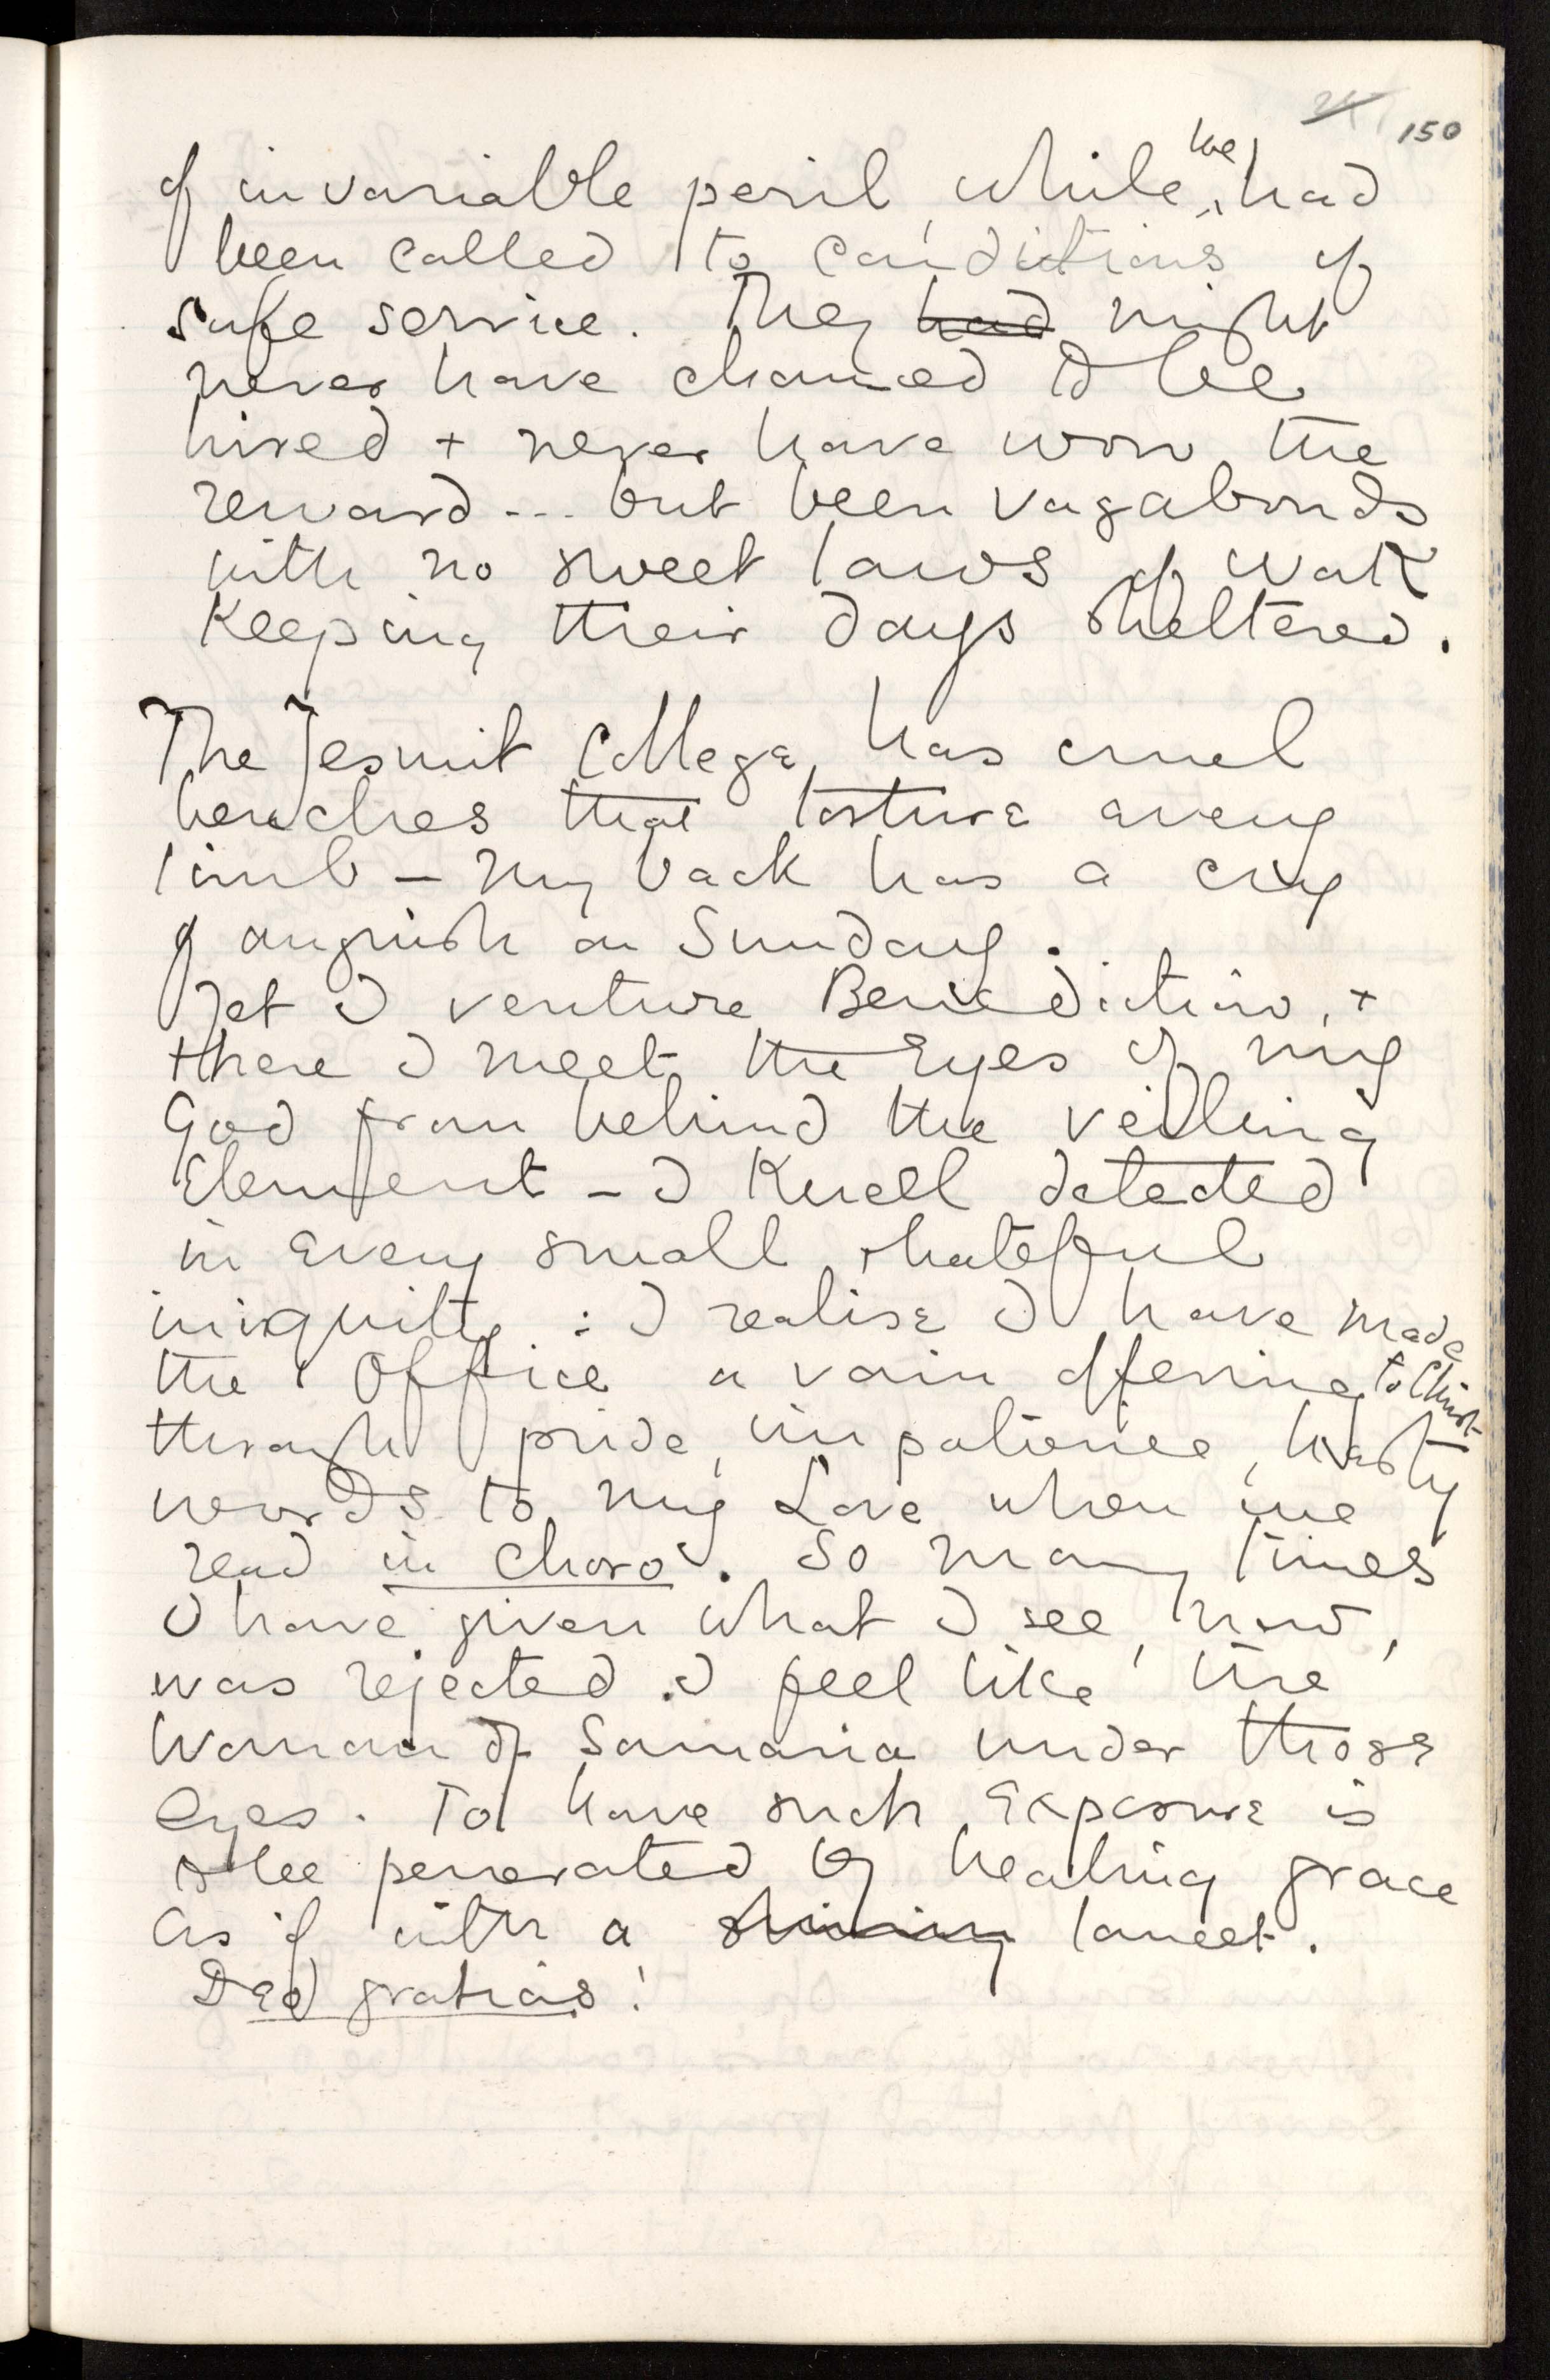 150
of invariable peril, while we had
been called to conditions of
safe service. They had might
never have chanced to be
hired + never have won the
reward... but been vagabonds
with no sweet laws of work
keeping their days sheltered.
The Jesuit College has cruel
benches that torture every
limb – my back has a cry
of anguish on Sunday.
Yet I venture Benediction, +
there I meet the Eyes of my
God from behind the veiling
Element – I kneel detected
in every small + hateful
iniquity : I realise I have made
the Office a vain offering to Christ
through pride, impatience, hasty
words to my Love when we
read in choro. So many times
I have given what I see, now,
was rejected. I feel like the
Woman of Samaria under those
eyes. To have such exposure is
to be penetrated by healing grace
as if with a shining lancet.
Deo gratias!